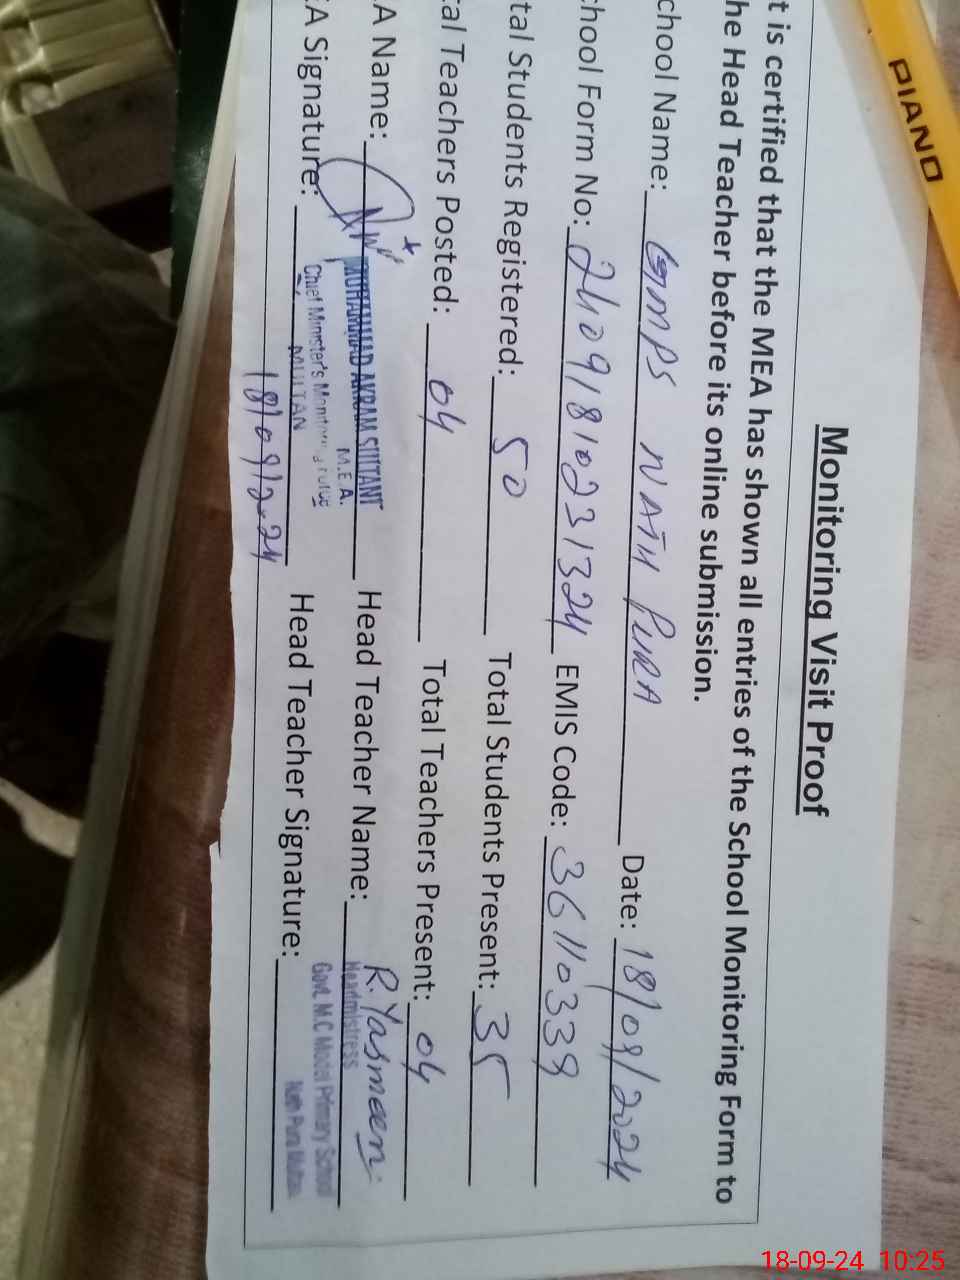 PIANO
Monitoring Visit Proof
t is certified that the MEA has shown all entries of the School Monitoring Form to
he Head Teacher before its online submission.
chool Name: GMPS NATH PURA Date: 18/09/2024
chool Form No: 24091810231324 EMIS Code: 36110339
tal Students Registered: 50 Total Students Present: 35
al Teachers Posted: 04 Total Teachers Present: 04
A Name: MUHAMMAD AKRAM Head Teacher Name: R. Yasmeen
M.E.A. Headmistress
EA Signature: Chief Minister's Head Teacher Signature: Govt. M.C Model Primary School
MULTAN
18/09/2024
18-09-24 10:25